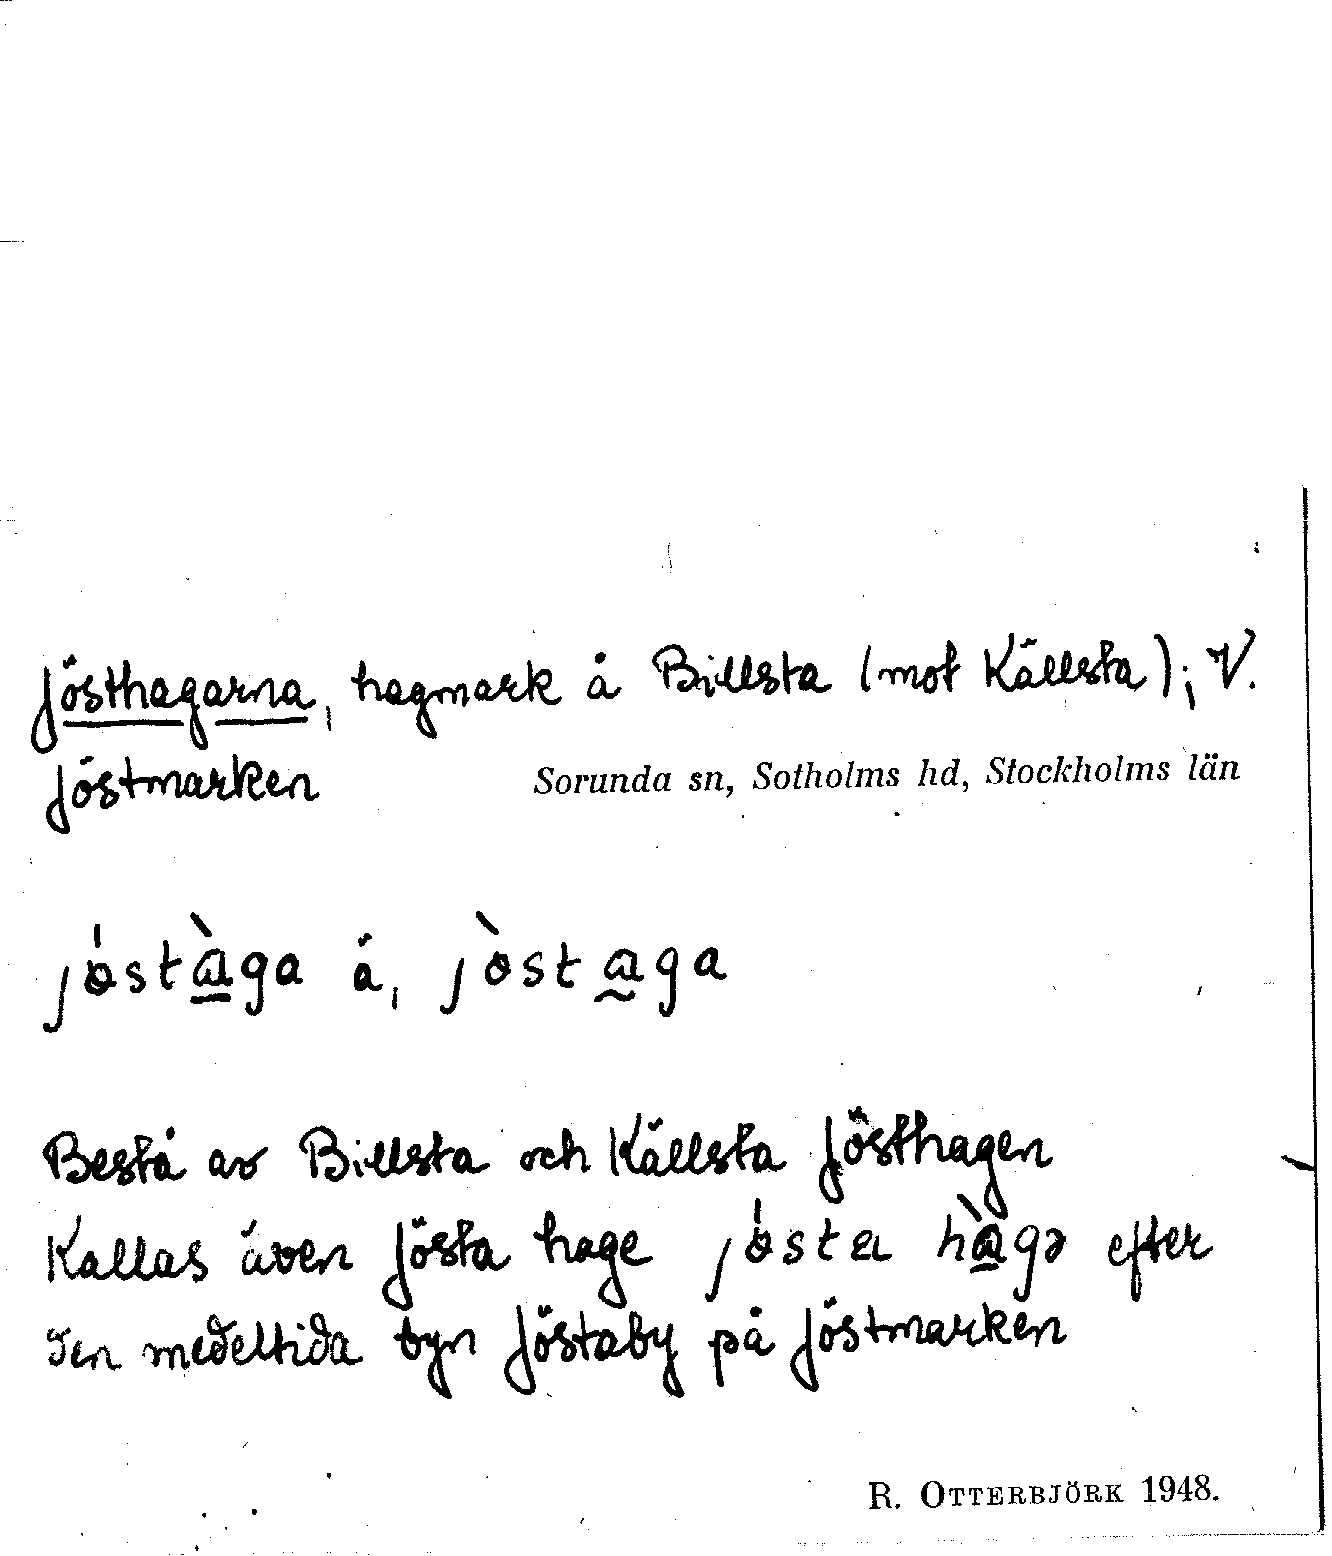 Jösthagarna, hagmark å Billsta (mot Källsta); V.
Jöstmarken
Sorunda sn, Sotholms hd, Stockholms län
jöstàga å, jòstaga
Bestå av Billsta och Källsta Jösthagen
Kallas även Jösta hage jösta hàgə efter
den medeltida byn Jöstaby på Jöstmarken
R. OTTERBJÖRK 1948.